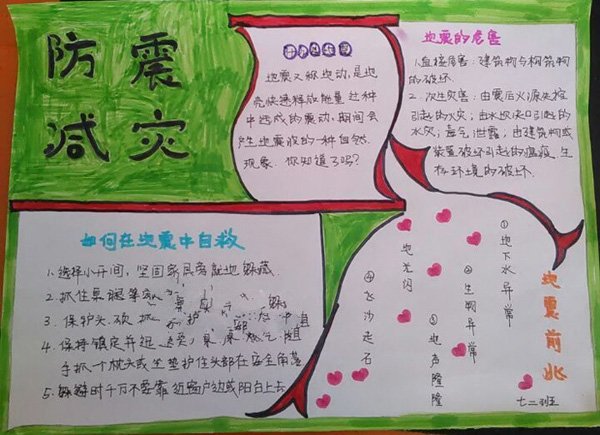 防震
减灾
什么是地震
地震又称地动,是地
壳快速释放能量过程
中造成的震动,期间会
产生地震波的一种自然
现象。你知道了吗?
地震的危害
1.直接危害:建筑物与构筑物
的破坏.
2.次生灾害:由震后火源失控
引起的火灾;由水坝决口引起的
水灾;毒气泄露;由建筑物或
装置破坏引起的瘟疫.生
存环境的破坏.
如何在地震中自救
1.选择小开间,坚固家具旁就地躲藏
2.抓住桌腿等
3.保护头.颈
4.保持镇定并
手抓一个枕头或坐垫护住头部在安全角落
5.躲避时千万不要靠近窗户边或阳台上去
地震前兆
①地下水异常
②生物异常
③地声隆隆
地光闪
④飞沙走石
七二班